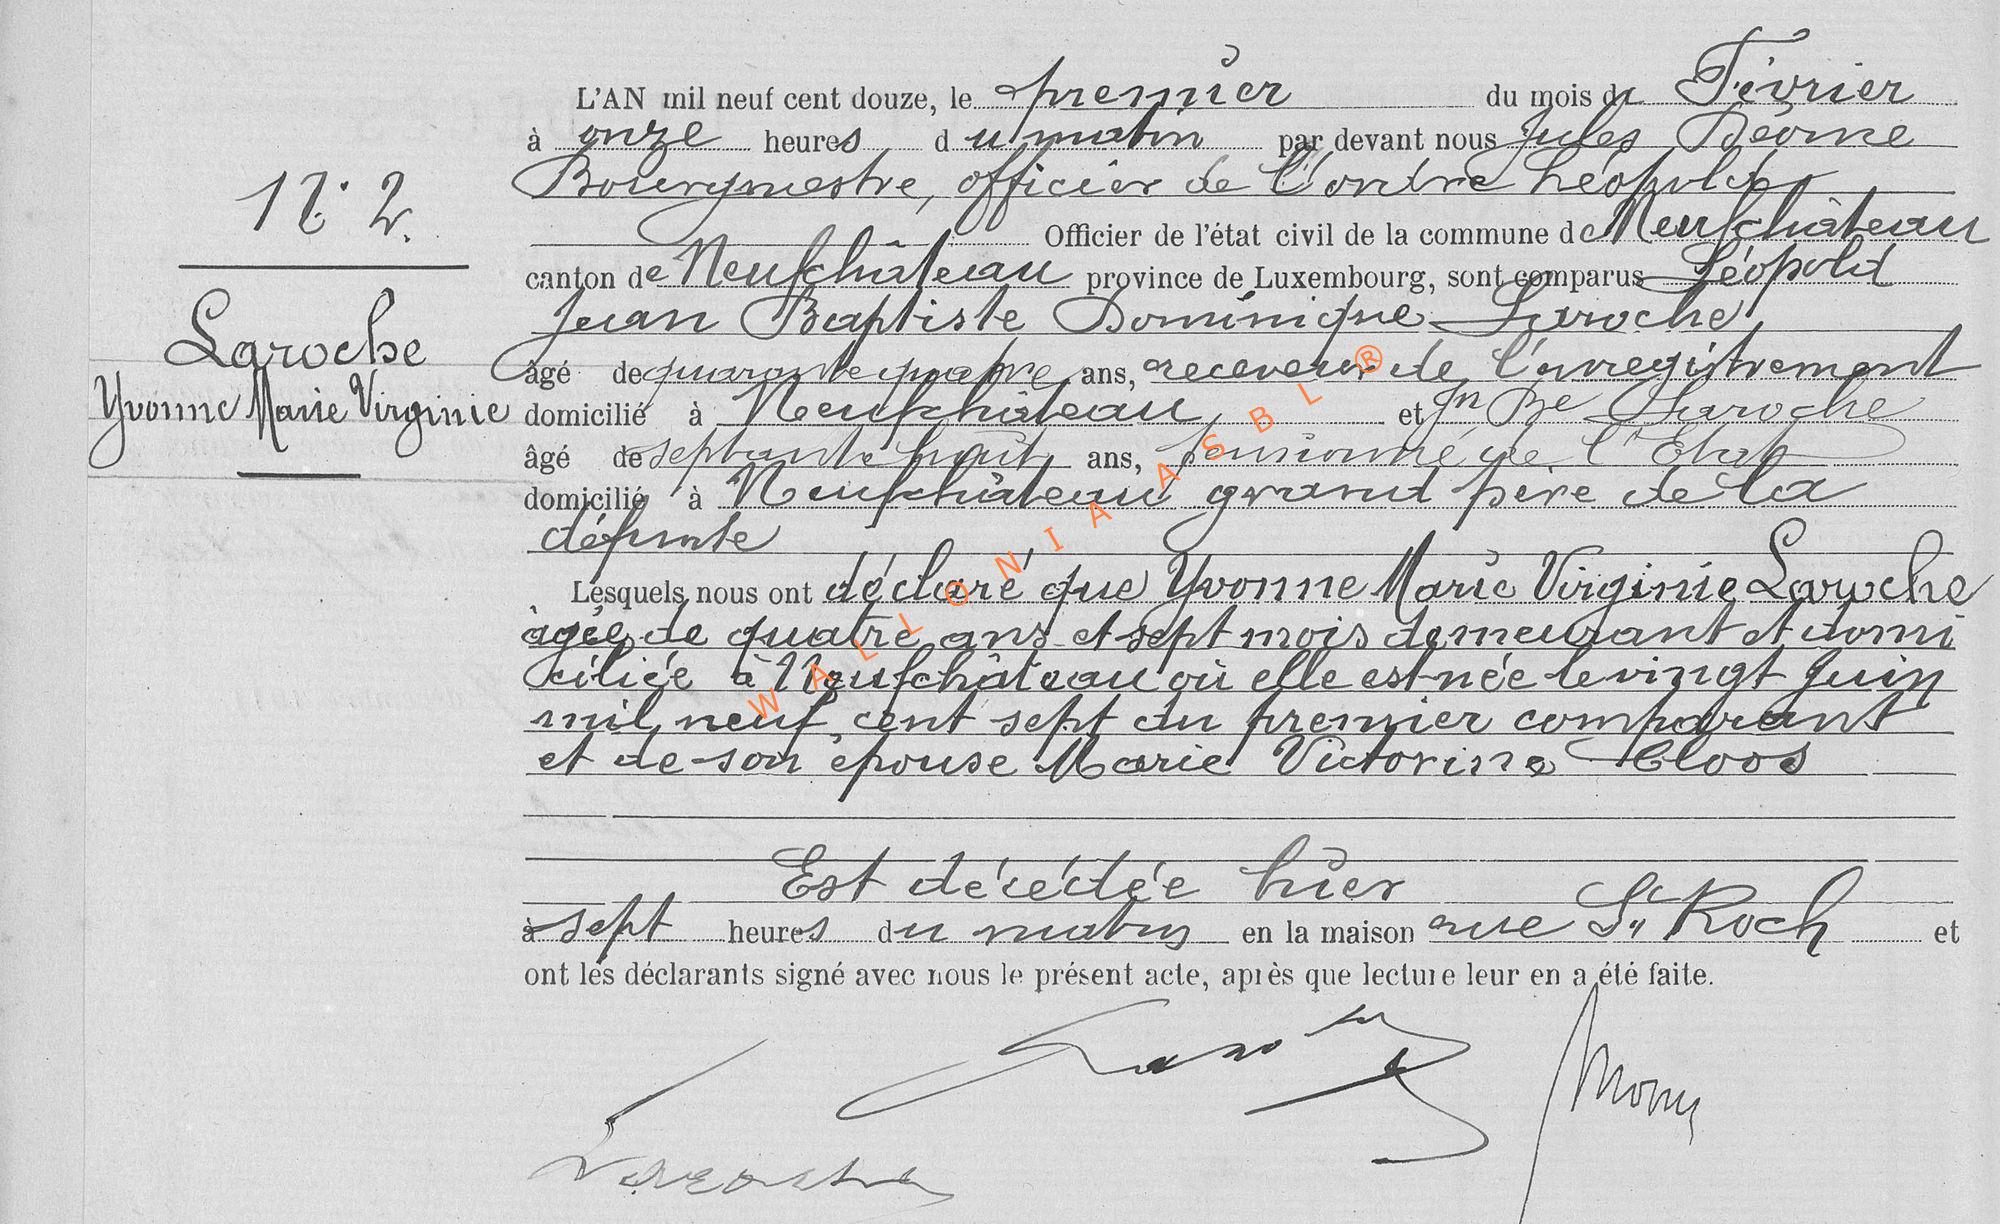 L'AN mil neuf cent douze, le premier du mois de Février
à onze heures du matin par devant nous Jules
Bourgmestre, officier de l'ordre Léopold,
N° 2.
Officier de l'état civil de la commune de Neufchâteau
canton de Neufchâteau province de Luxembourg, sont comparus Léopold
Jean Baptiste Dominique Laroche
Laroche
âgé de quarante quatre ans, receveur de l'enregistrement
Yvonne Marie Virginie
domicilié à Neufchâteau et Jn Bte Laroche
âgé de septante huit ans, pensionné de l'Etat
domicilié à Neufchâteau grand père de la
défunte
Lesquels nous ont déclaré que Yvonne Marie Virginie Laroche
âgée de quatre ans et sept mois demeurant et domi
ciliée à Neufchâteau où elle est née le vingt Juin
mil neuf cent sept du premier comparant
et de son épouse Marie Victorine Cloos
Est décédée hier
à sept heures du matin en la maison rue St Roch et
ont les déclarants signé avec nous le présent acte, après que lecture leur en a été faite.
Laroche
WALLONIA ASBL ®